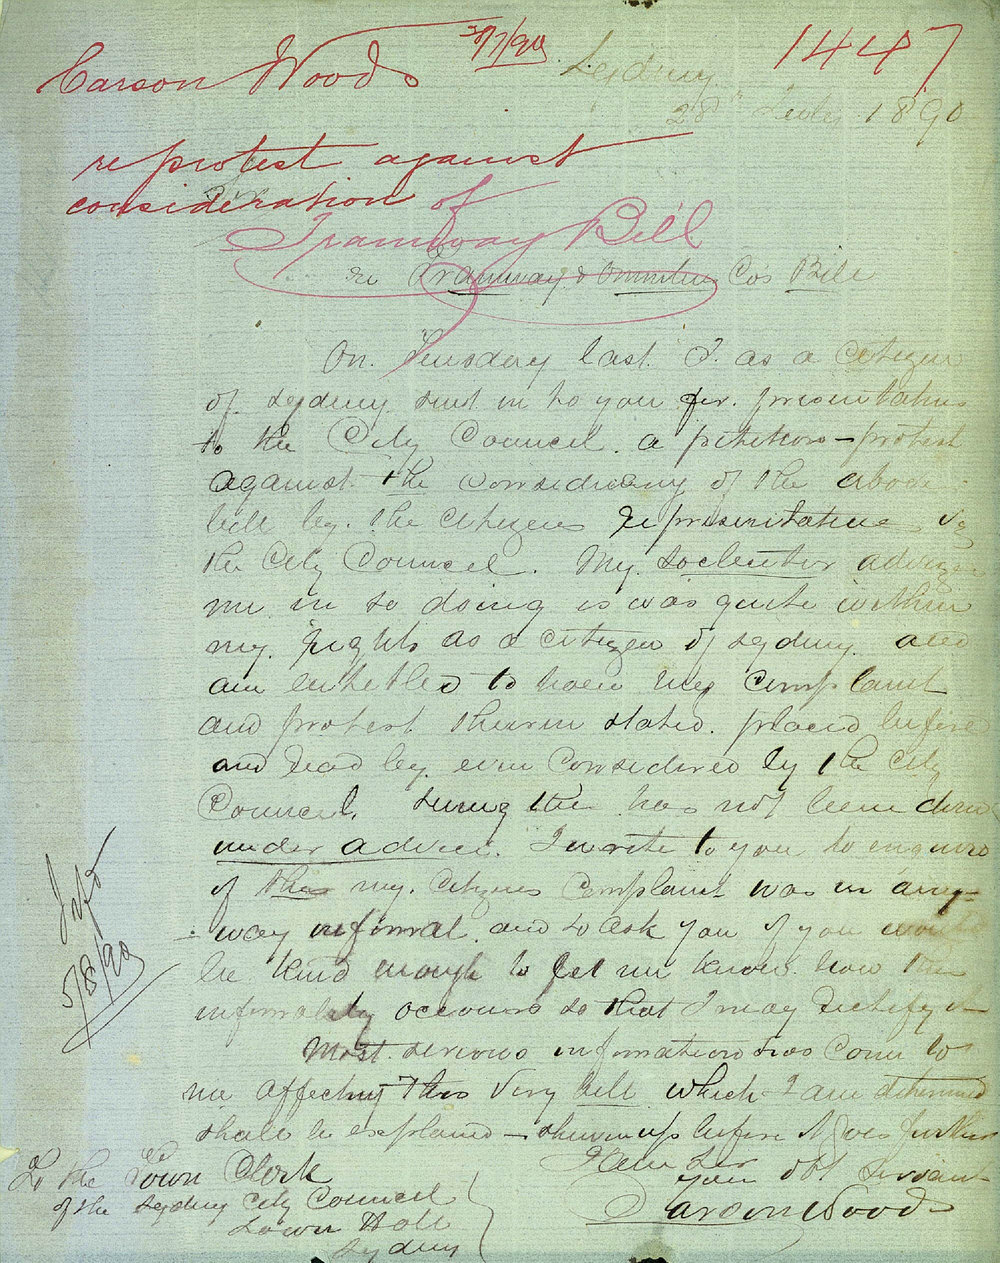 Carson Woods
30/7/90
1447
Sydney
28th July 1890
re protest against
consideration of
Tramway Bill
Sir
re Tramway & Omnibus Cos Bill
On Tuesday last I as a citizen
of Sydney sent in to you for presentation
to the City Council a petition – protest
against the considering of the above
bill by the citizens representative viz
the City Council. My Solicitor advizes
me in so doing is was quite within
my rights as a citizen of Sydney and
am entitled to have my complaint
and protest therein stated placed before
and read by even considered by the City
Council, Seeing this has not been done
under advice. I write to you to enquire
if this my citizens complaint was in any-
-way informal and to ask you if you would
be kind enough to let me know how the
informality occours so that I may rectify it
Most serious information has come to
me affecting this very bill which I am determined
shall be explained – shewn up before it goes further
I am Sir
your obt Servant
Carson Woods
To the Town Clerk
of the Sydney City Council
Town Hall
Sydney
5/8/90